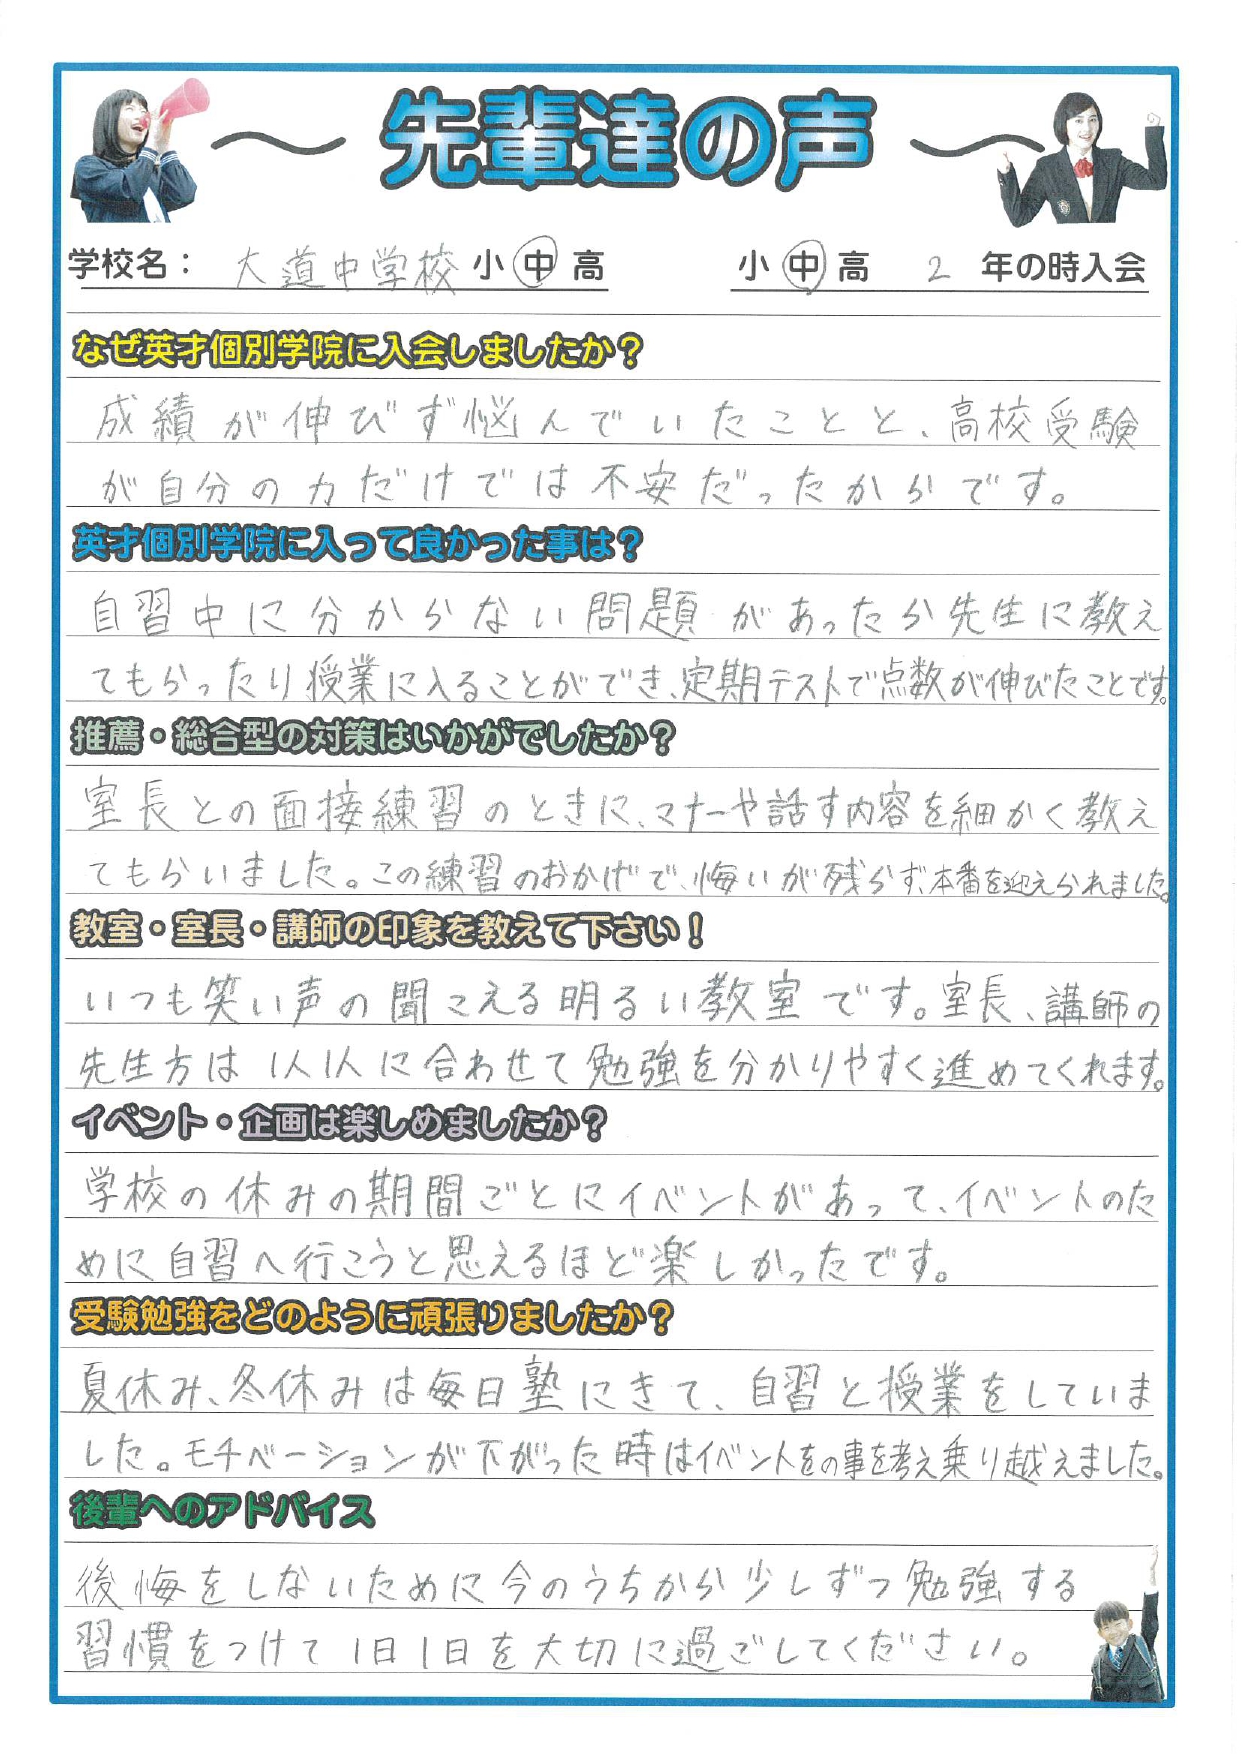 〜先輩達の声〜
学校名： 大道中学校 小 中 高　小 中 高 2 年の時入会
なぜ英才個別学院に入会しましたか？
成績が伸びず悩んでいたことと、高校受験
が自分の力だけでは不安だったからです。
英才個別学院に入って良かった事は？
自習中に分からない問題があったら先生に教え
てもらったり授業に入ることができ、定期テストで点数が伸びたことです。
推薦・総合型の対策はいかがでしたか？
室長との面接練習のときに、マナーや話す内容を細かく教え
てもらいました。この練習のおかげで、悔いが残らず、本番を迎えられました。
教室・室長・講師の印象を教えて下さい！
いつも笑い声の聞こえる明るい教室です。室長、講師の
先生方は1人1人に合わせて勉強を分かりやすく進めてくれます。
イベント・企画は楽しめましたか？
学校の休みの期間ごとにイベントがあって、イベントのた
めに自習へ行こうと思えるほど楽しかったです。
受験勉強をどのように頑張りましたか？
夏休み、冬休みは毎日塾にきて、自習と授業をしていま
した。モチベーションが下がった時はイベントをの事を考え乗り越えました。
後輩へのアドバイス
後悔をしないために今のうちから少しずつ勉強する
習慣をつけて1日1日を大切に過ごしてください。